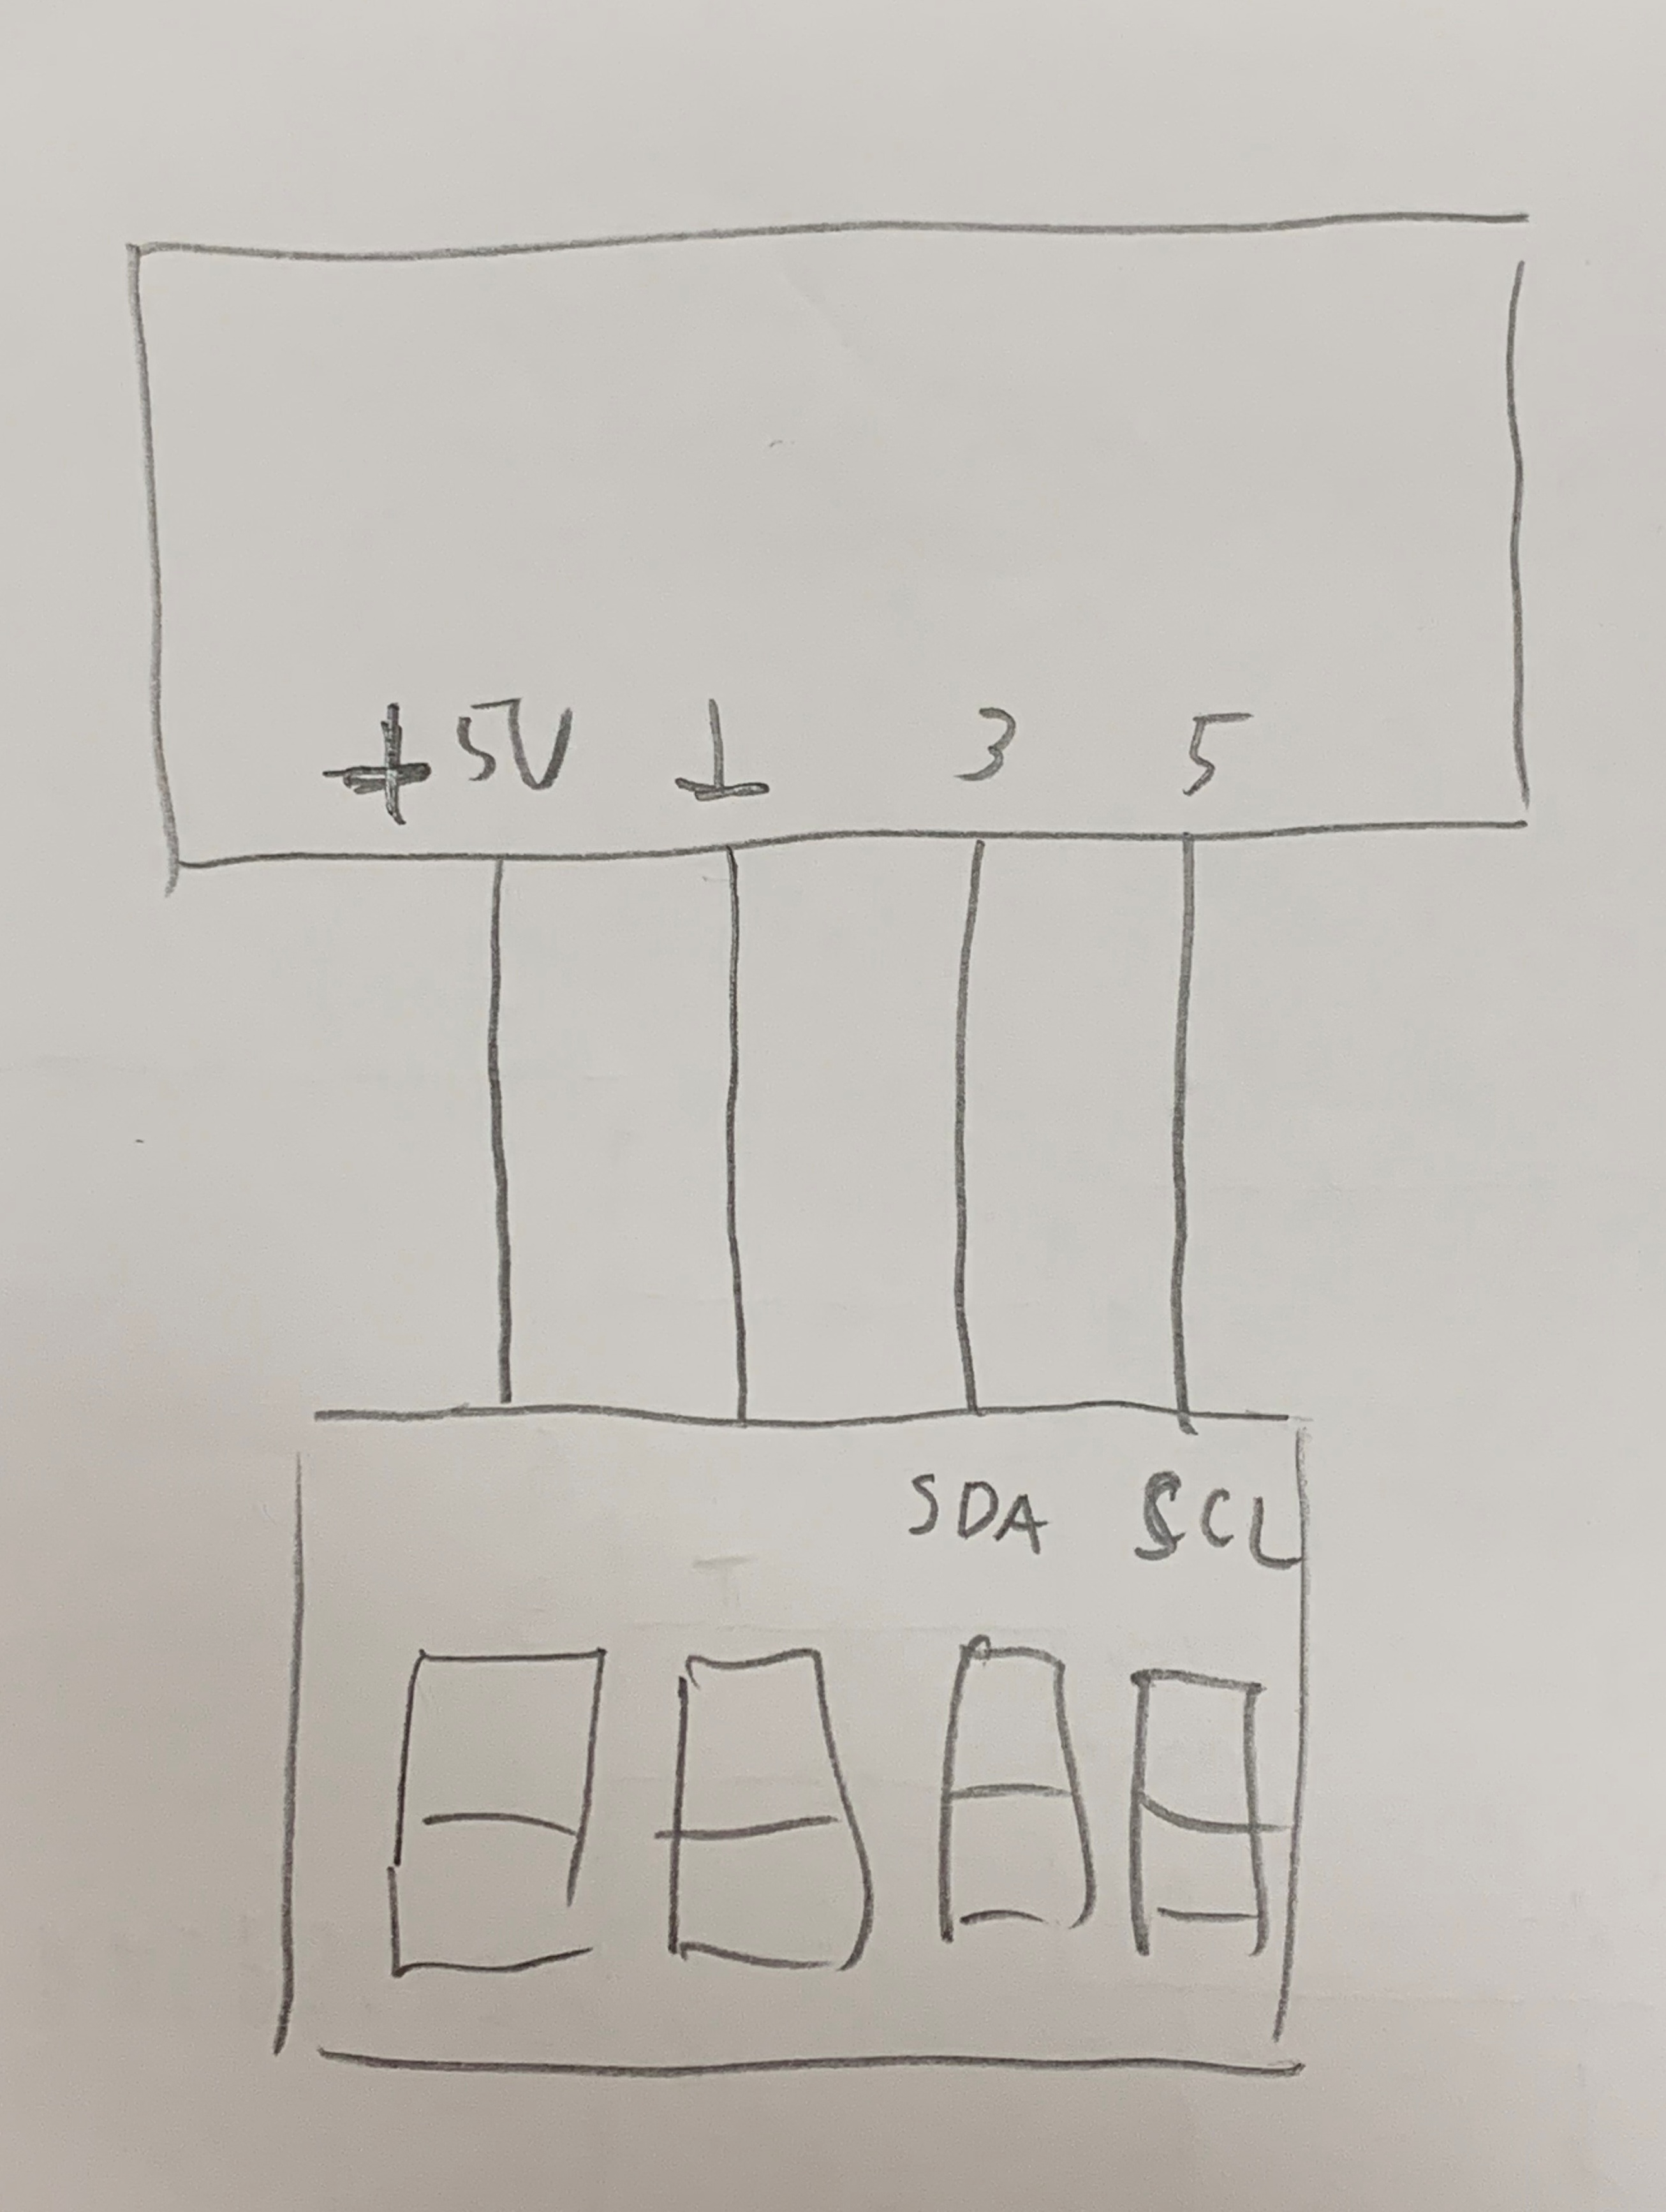 +5V ⊥ 3 5
SDA SCL